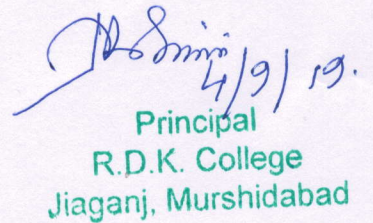 4/9/19.
Principal
R.D.K. College
Jiaganj, Murshidabad